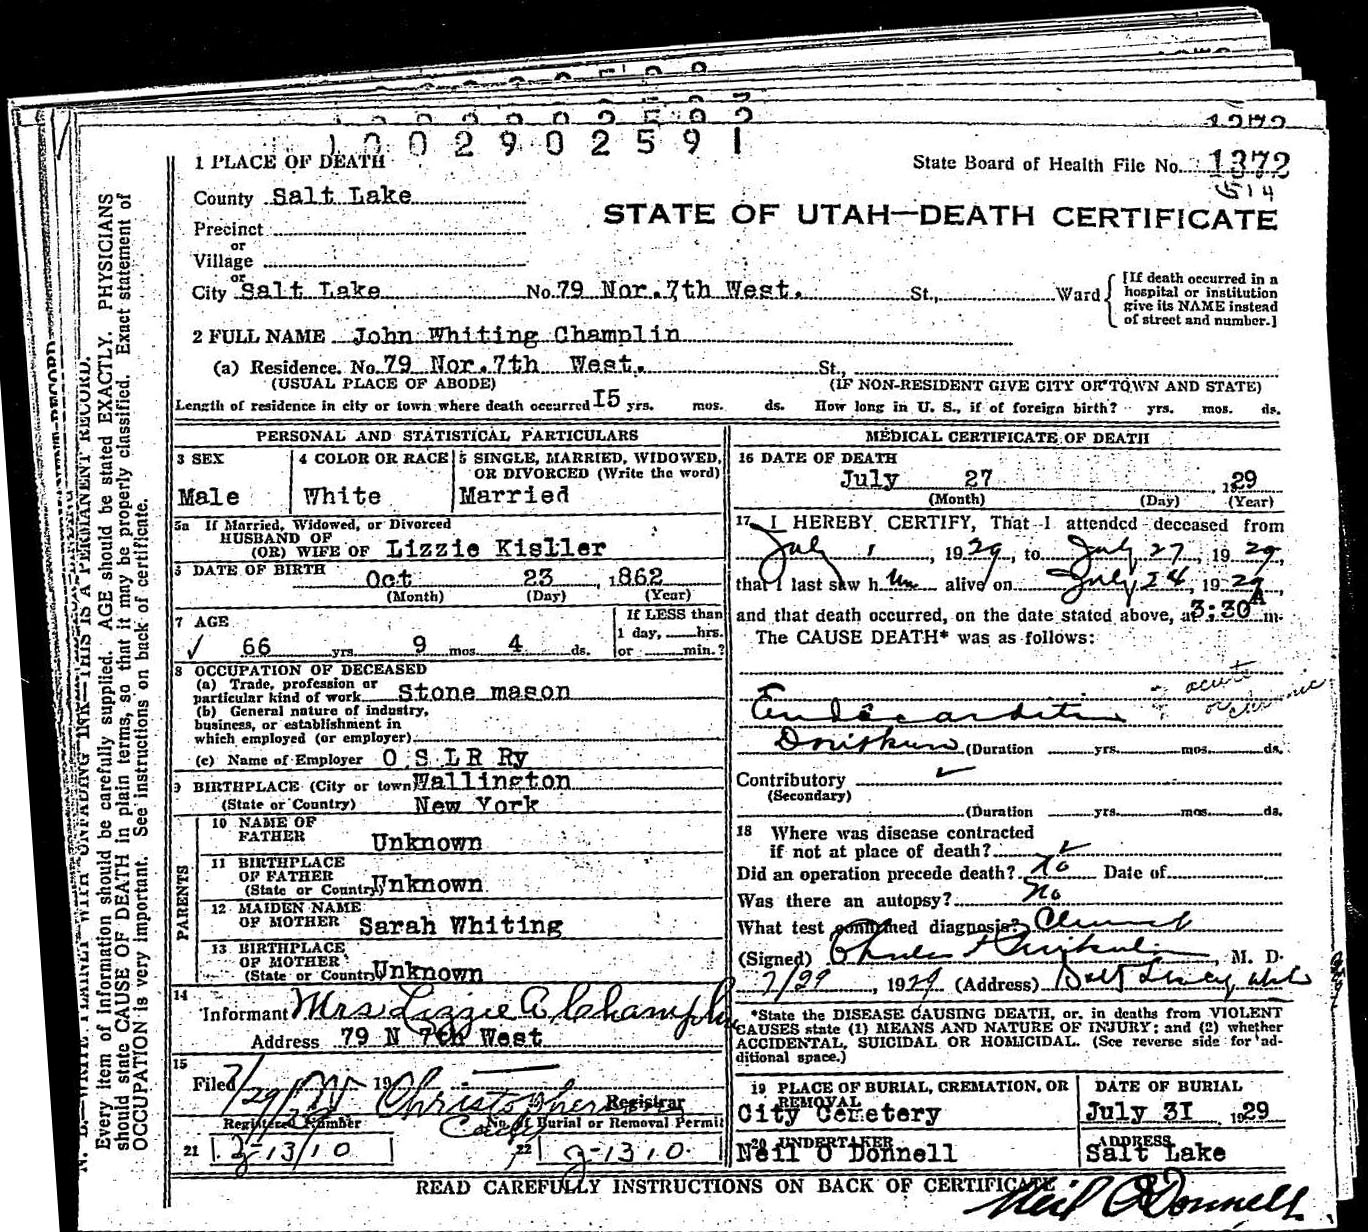 1 0 0 2 9 0 2 5 9 1
1 PLACE OF DEATH
State Board of Health File No. 1372
514
County Salt Lake
STATE OF UTAH—DEATH CERTIFICATE
Precinct
or
Village
or
City Salt Lake No. 79 Nor. 7th West. St., Ward
[If death occurred in a hospital or institution give its NAME instead of street and number.]
2 FULL NAME John Whiting Champlin
(a) Residence. No. 79 Nor. 7th West. St.,
(USUAL PLACE OF ABODE) (IF NON-RESIDENT GIVE CITY OR TOWN AND STATE)
Length of residence in city or town where death occurred I5 yrs. mos. ds. How long in U. S., if of foreign birth? yrs. mos. ds.
PERSONAL AND STATISTICAL PARTICULARS
3 SEX 4 COLOR OR RACE 5 SINGLE, MARRIED, WIDOWED,
OR DIVORCED (Write the word)
Male White Married
5a If Married, Widowed, or Divorced
HUSBAND OF
(OR) WIFE OF Lizzie Kisller
DATE OF BIRTH Oct 23, 1862
(Month) (Day) (Year)
7 AGE If LESS than
1 day, hrs.
66 yrs 9 mos 4 ds. or min.?
8 OCCUPATION OF DECEASED
(a) Trade, profession or
particular kind of work Stone mason
(b) General nature of industry,
business, or establishment in
which employed (or employer)
(c) Name of Employer O S L R Ry
9 BIRTHPLACE (City or town Wallington
(State or Country) New York
PARENTS
10 NAME OF
FATHER Unknown
11 BIRTHPLACE
OF FATHER
(State or Country) Unknown
12 MAIDEN NAME
OF MOTHER Sarah Whiting
13 BIRTHPLACE
OF MOTHER
(State or Country) Unknown
14
Informant Mrs Lizzie A Champlin
Address 79 N 7th West
15
Filed 7/29 19 Christopher
Registrar
Registered Number No. of Burial or Removal Permit
21 2-1310 22 2-1310
MEDICAL CERTIFICATE OF DEATH
16 DATE OF DEATH
July 27 1929
(Month) (Day) (Year)
17 I HEREBY CERTIFY, That I attended deceased from
July 1, 1929, to July 27, 1929,
that I last saw him alive on July 24, 1929,
and that death occurred, on the date stated above, at 3:30 A m.
The CAUSE DEATH* was as follows:
acute
or chronic
Endocarditis
(Duration yrs. mos. ds.
Contributory
(Secondary)
(Duration yrs. mos. ds.
18 Where was disease contracted
if not at place of death?
Did an operation precede death? No Date of
Was there an autopsy? No
What test confirmed diagnosis? Clinical
(Signed) Charles , M. D.
7/29, 1929 (Address) Salt Lake City Utah
*State the DISEASE CAUSING DEATH, or, in deaths from VIOLENT
CAUSES state (1) MEANS AND NATURE OF INJURY; and (2) whether
ACCIDENTAL, SUICIDAL OR HOMICIDAL. (See reverse side for ad-
ditional space.)
19 PLACE OF BURIAL, CREMATION, OR DATE OF BURIAL
REMOVAL
City Cemetery July 3I 1929
20 UNDERTAKER ADDRESS
Neil O Donnell Salt Lake
READ CAREFULLY INSTRUCTIONS ON BACK OF CERTIFICATE
Neil O'Donnell
N. B.—WRITE PLAINLY WITH UNFADING INK—THIS IS A PERMANENT RECORD.
Every item of information should be carefully supplied. AGE should be stated EXACTLY. PHYSICIANS
should state CAUSE OF DEATH in plain terms, so that it may be properly classified. Exact statement of
OCCUPATION is very important. See instructions on back of certificate.